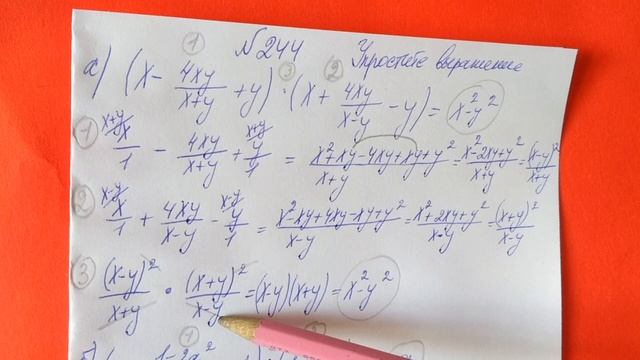 N244 Упростите выражение
а) (x - 4xy/(x+y) + y) · (x + 4xy/(x-y) - y) = x² - y²
① ② ③
① x/1 - 4xy/(x+y) + y/1 = (x²+xy-4xy+xy+y²)/(x+y) = (x²-2xy+y²)/(x+y) = (x-y)²/(x+y)
x+y x+y
② x/1 + 4xy/(x-y) - y/1 = (x²-xy+4xy-xy+y²)/(x-y) = (x²+2xy+y²)/(x-y) = (x+y)²/(x-y)
x-y x-y
③ (x-y)²/(x+y) · (x+y)²/(x-y) = (x-y)(x+y) = x² - y²